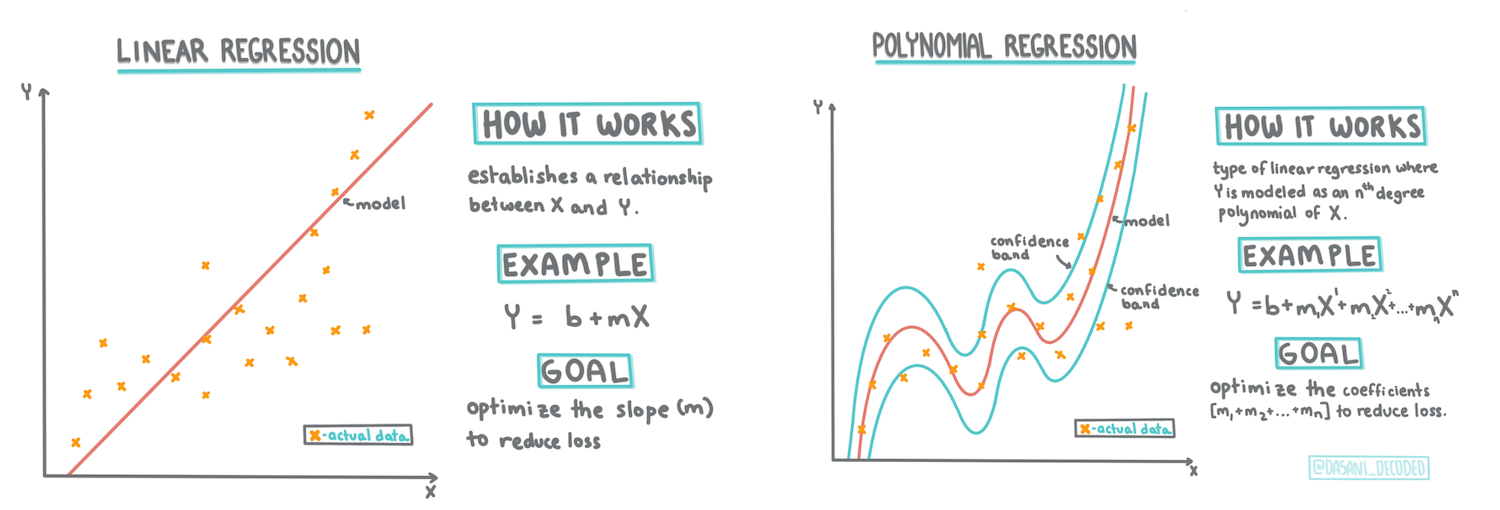 LINEAR REGRESSION
Y
X
model
x-actual data
HOW IT WORKS
establishes a relationship
between X and Y.
EXAMPLE
Y = b+mX
GOAL
optimize the slope (m)
to reduce loss
POLYNOMIAL REGRESSION
Y
X
confidence
band
model
confidence
band
x-actual data
HOW IT WORKS
type of linear regression where
Y is modeled as an nth degree
polynomial of X.
EXAMPLE
Y = b+m₁X¹+m₂X²+...+mₙXⁿ
GOAL
optimize the coefficients
[m₁+m₂+...+mₙ] to reduce loss.
@DASANI_DECODED